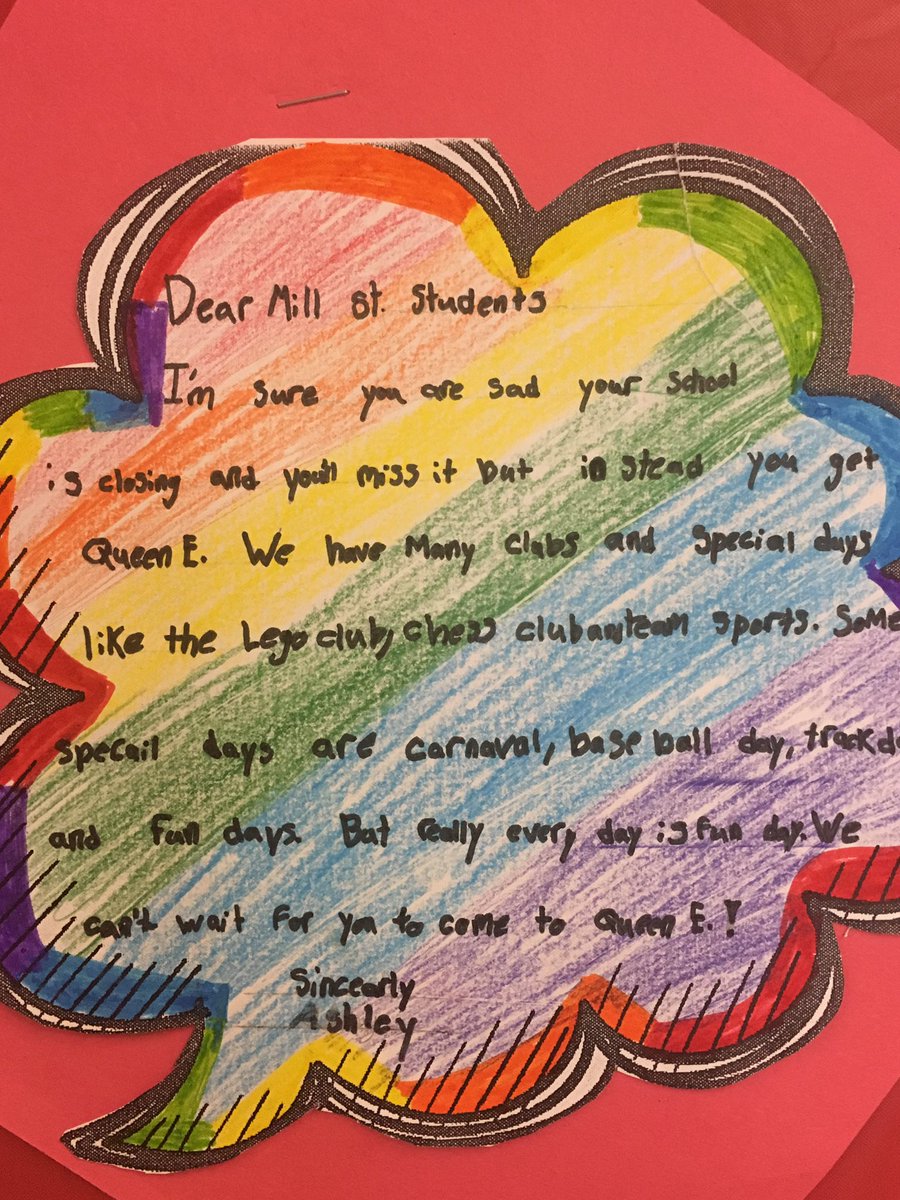 Dear Mill St. Students
I'm sure you are sad your school
is closing and you'll miss it but in stead you get
Queen E. We have Many clubs and special days
like the Lego club, chess club an team sports. Some
specail days are carnaval, base ball day, track da
and fun days. But really every day is fun day. We
can't wait for you to come to Queen E.!
Sincearly
Ashley